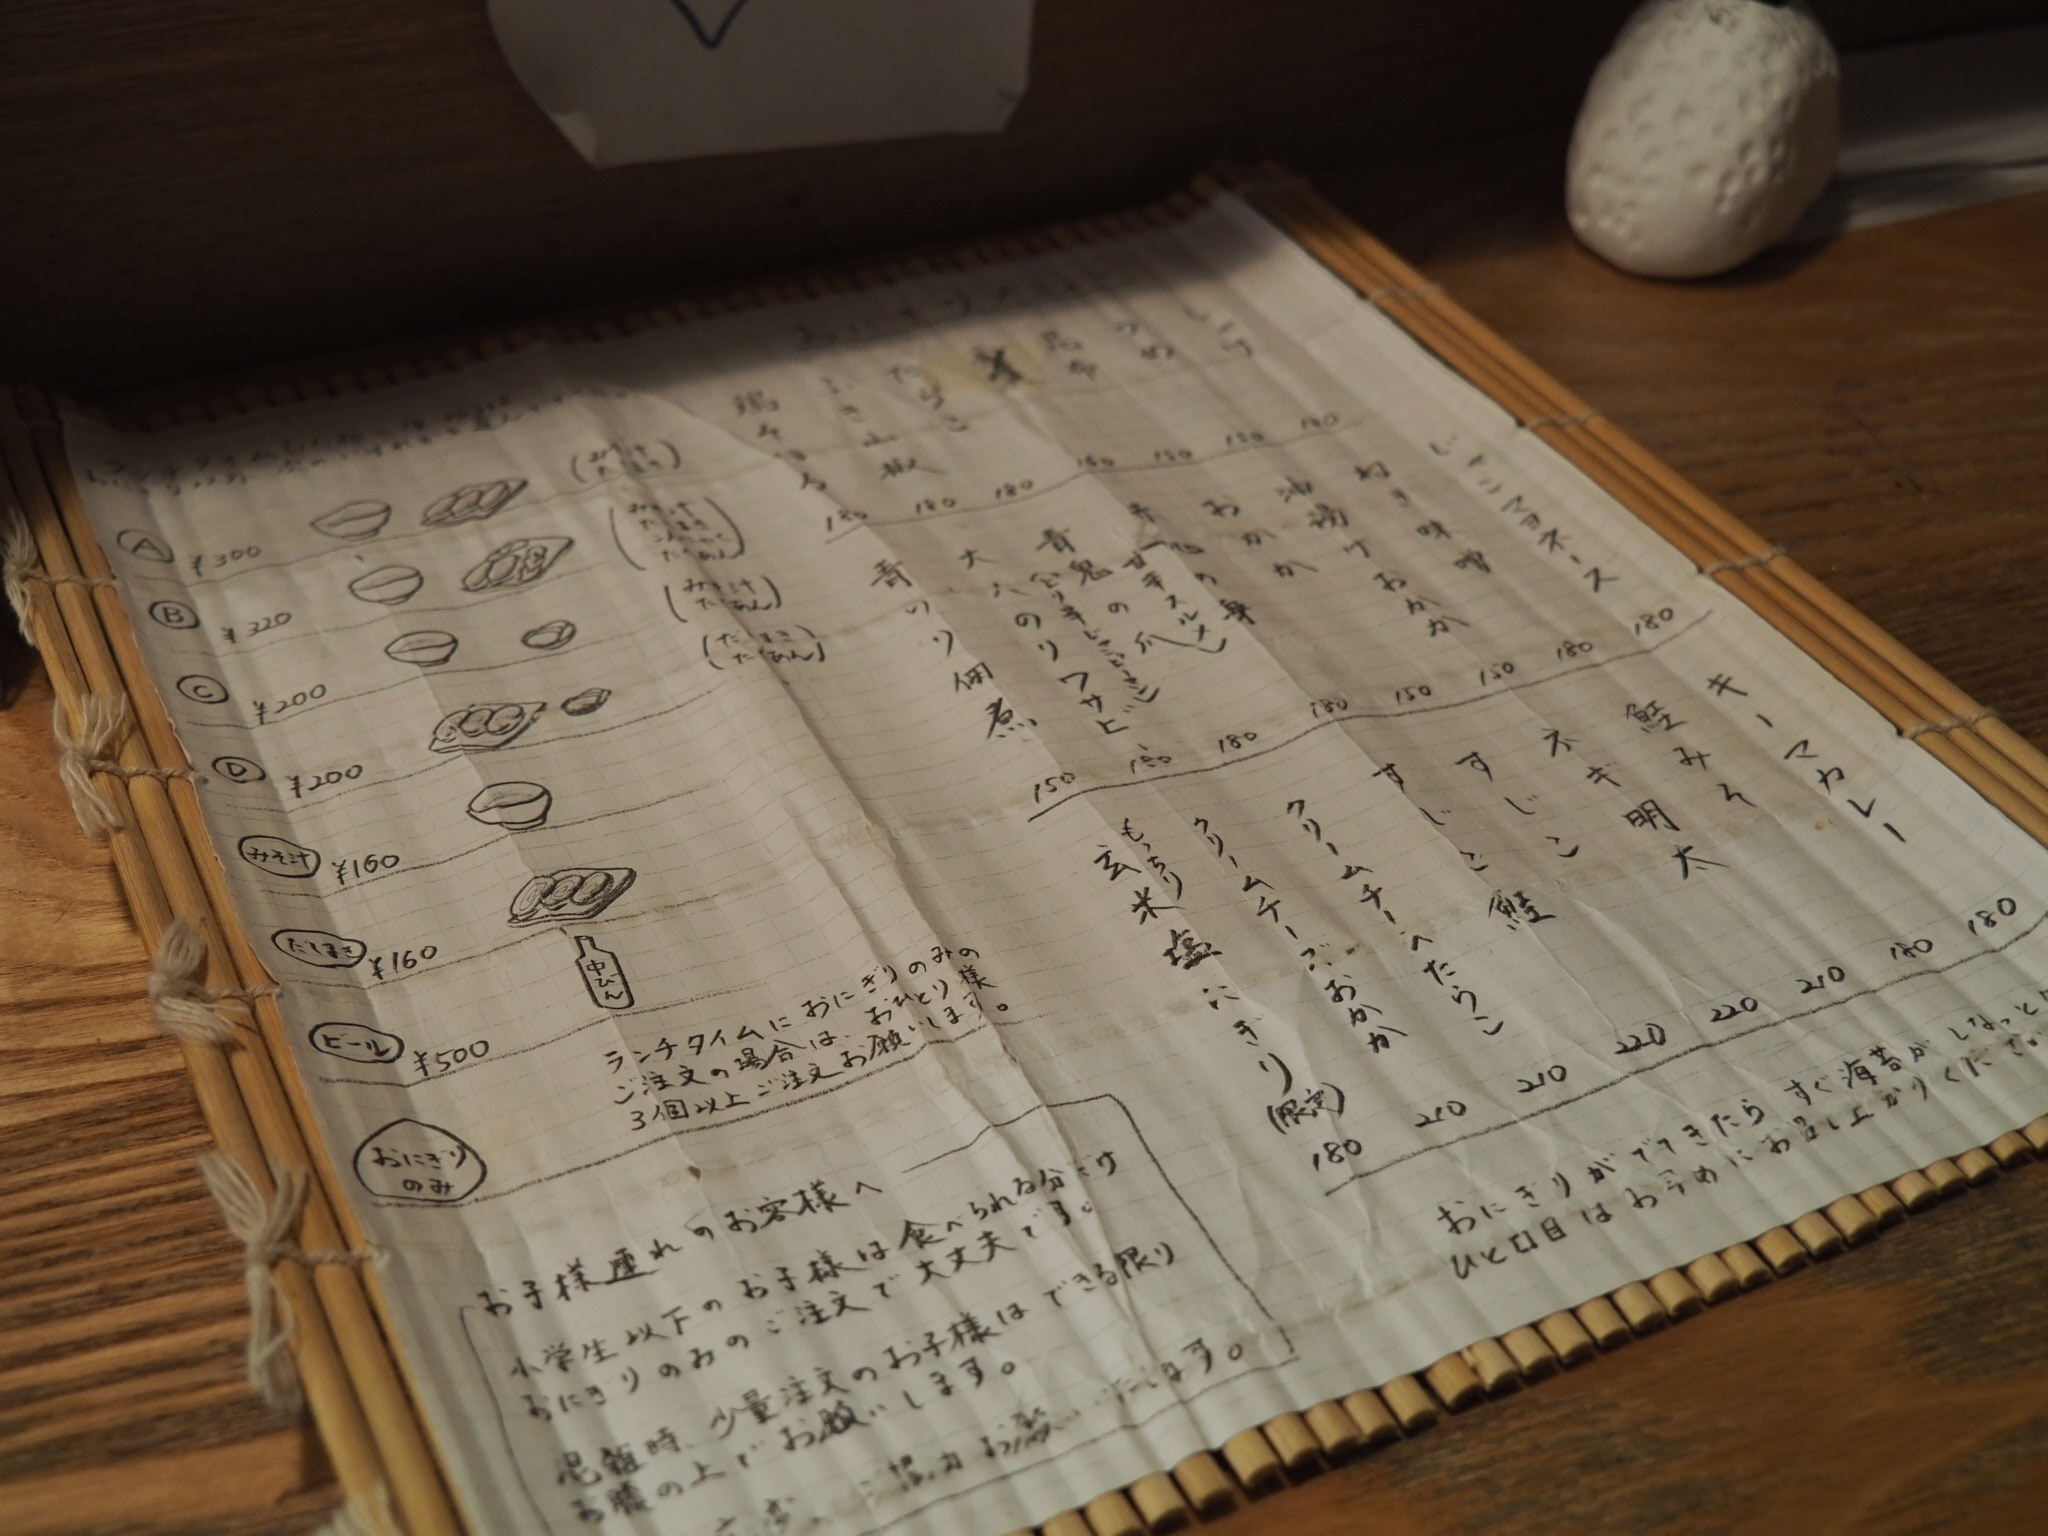 おにぎり
しそ
うめ
昆布
たらこ
ふき山椒
鶏そぼろ
180
180
180
160
150
150
140
じゃこマヨネーズ
ねぎ味噌
油揚げおかか
おかか
青鬼の爪
大人のりワサビ
青のり佃煮
150
150
180
180
150
150
180
180
キーマカレー
鮭みそ
ネギ明太
すじこ
すじこ鮭
クリームチーズたらこ
クリームチーズおかか
もっちり玄米塩にぎり(限定)
180
210
210
220
220
210
180
180
おにぎりができたらすぐ海苔がしなっと
ひと口目はお早めにお召し上がりください
Ⓐ ¥300 (みそ汁 たしまき)
Ⓑ ¥320 (みそ汁 たしまき こんにゃく たくあん)
Ⓒ ¥200 (みそ汁 たくあん)
Ⓓ ¥200 (たしまき たくあん)
みそ汁 ¥160
たしまき ¥160
ビール ¥500 中びん
おにぎりのみ
ランチタイムにおにぎりのみの
ご注文の場合は、おひとり様
3個以上ご注文お願いします。
お子様連れのお客様へ
小学生以下のお子様は食べられる分だけ
おにぎりのみのご注文で大丈夫です。
混雑時、少量注文のお子様はできる限り
お膝の上でお願いします。
ご協力お願いいたします。